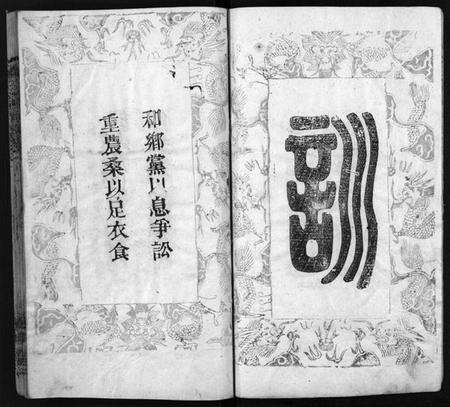 訓
和鄉黨以息爭訟
重農桑以足衣食